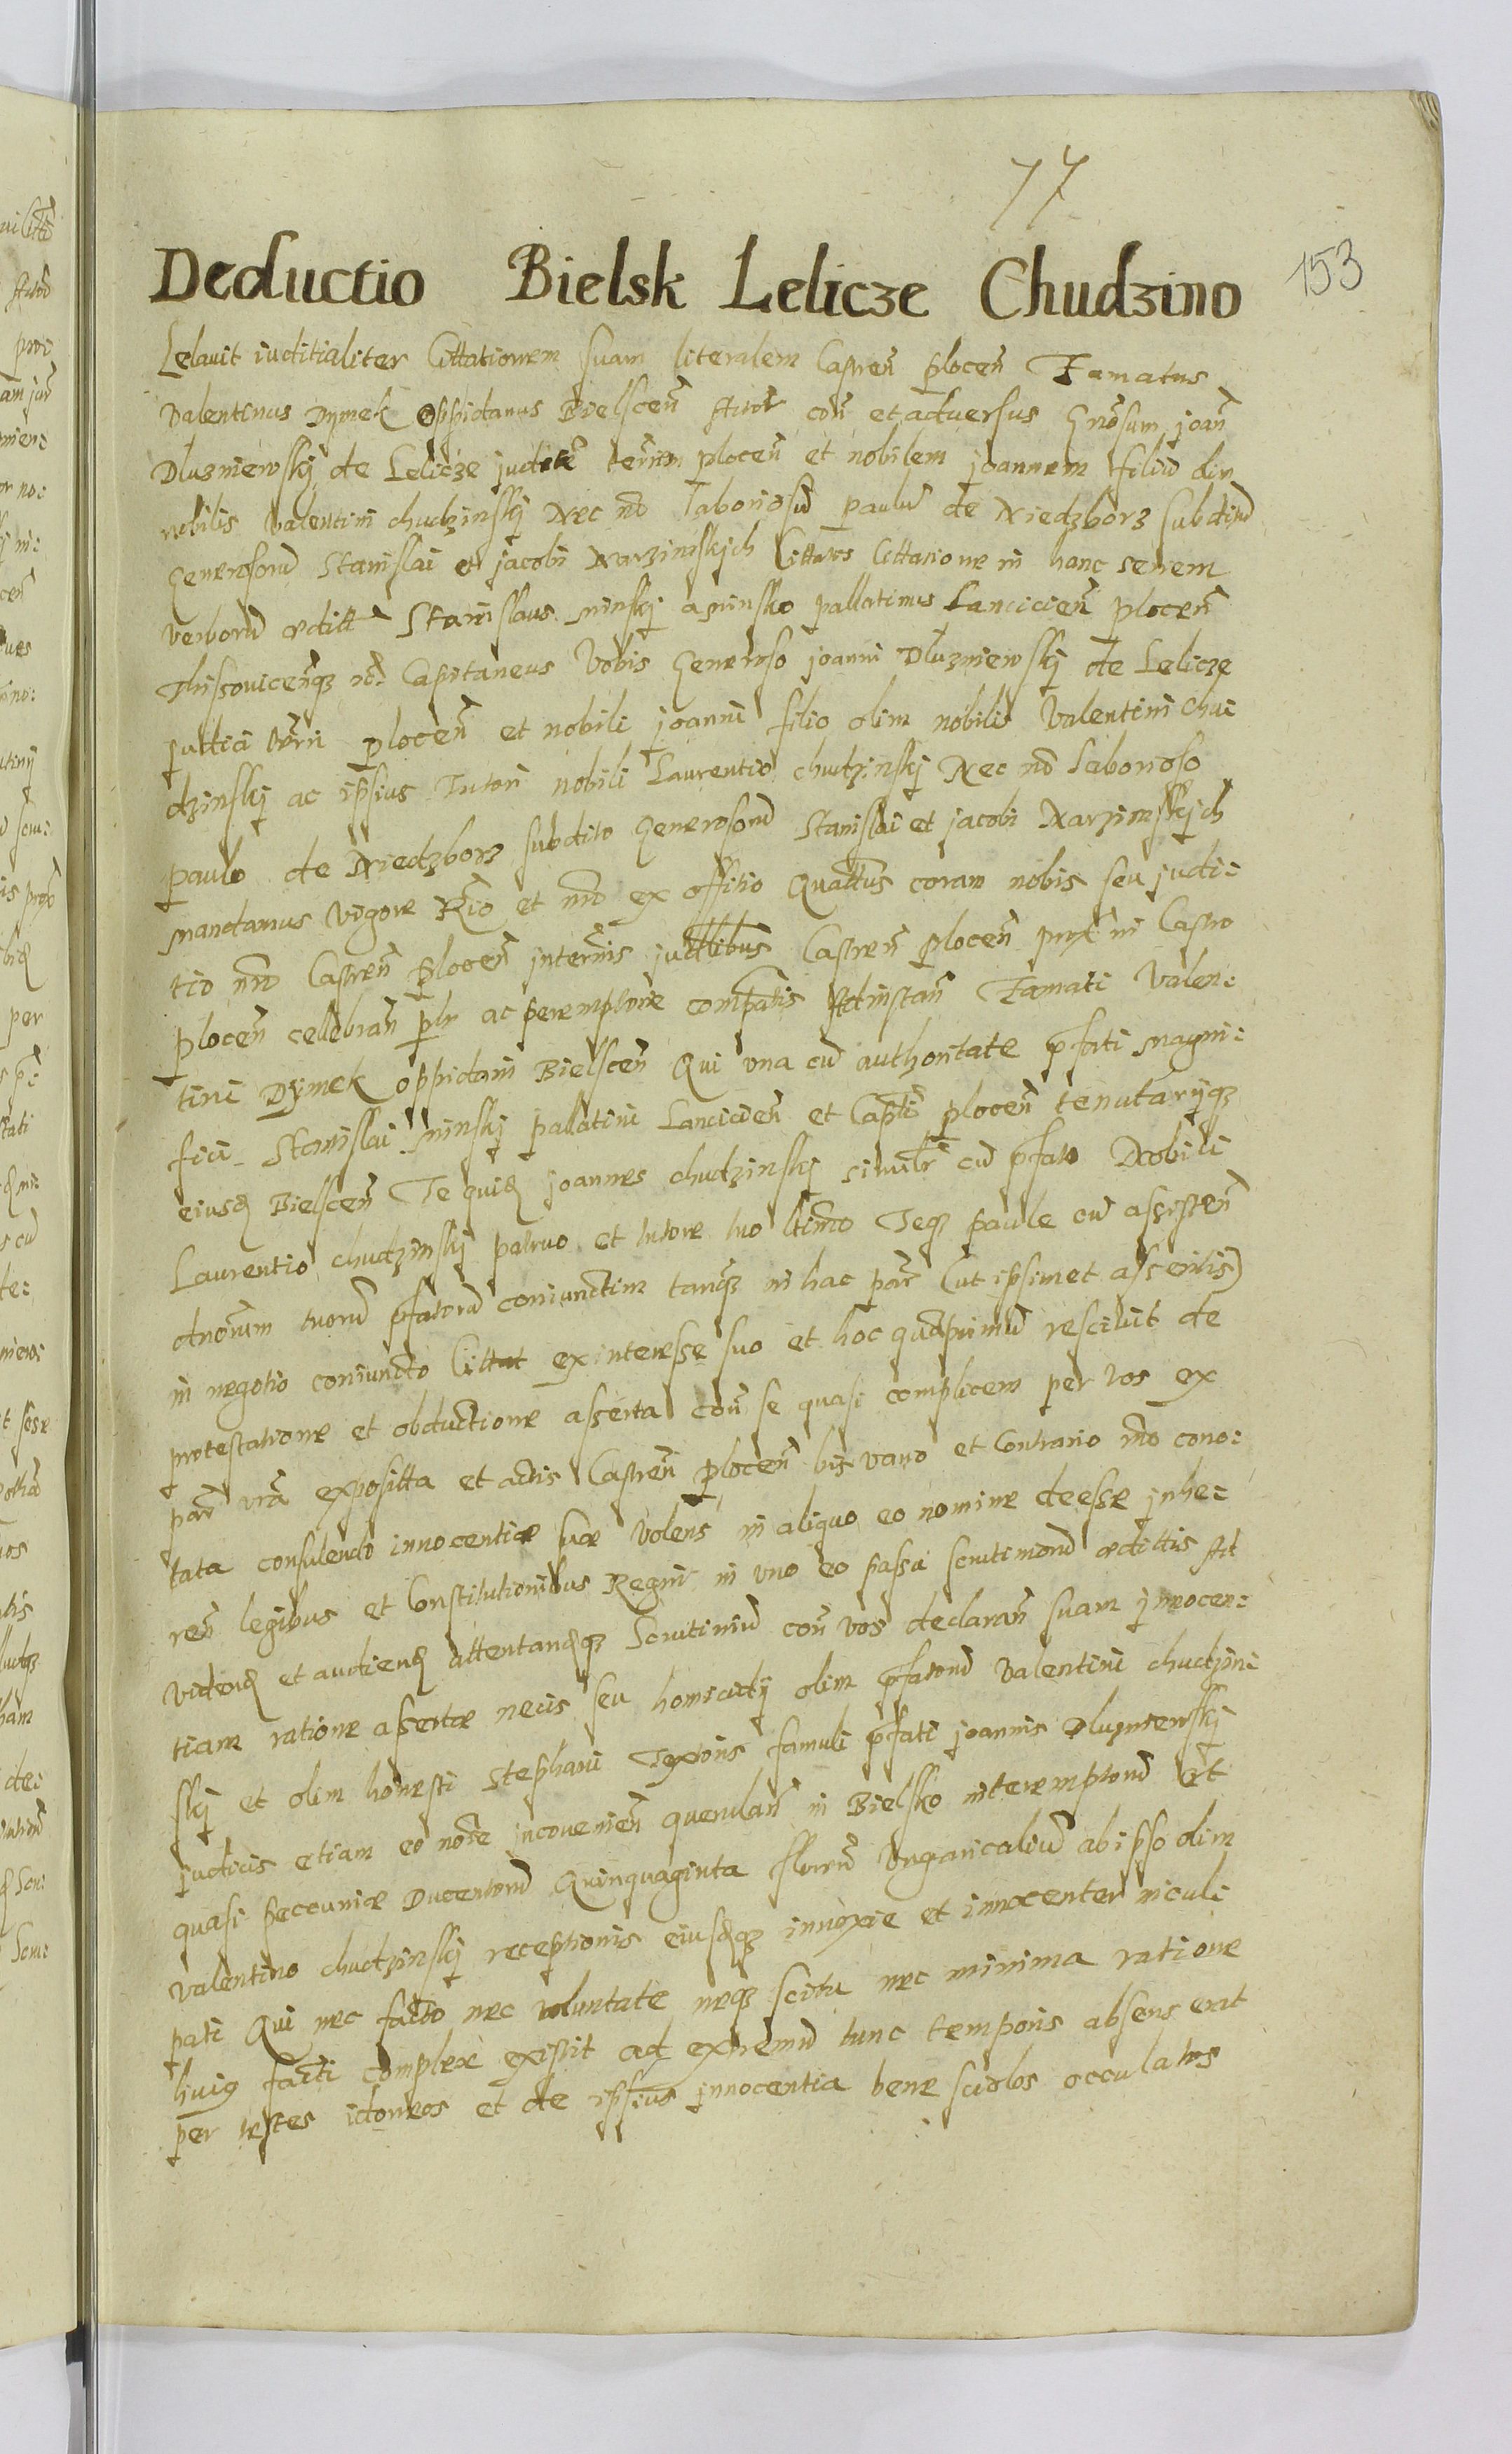 77
153
Deductio Bielsk Lelicze Chudzino
Lelauit iuditialiter Cittationem suam literalem Castren̄ plocen̄ Famatus
Valentinus Dymek Oppidanus Bielscen̄ Actor con̄ et adversus Gn̄osum joan̄
Dluzniewskj de Lelicze judicē terrēm plocen̄ et nobilem joannem filiū olim
nobilis Valentini chudzinskj Nec nō laboriosū paulū de Niedzborz subditū
Generosorū Stanislai et jacobi Narzimskich Cittatos Cittatione in hanc seriem
verborū ædittā Stanislaus minskj a minsko pallatinus Lancicien̄ plocen̄
 Capitaneus Vobis Generoso joanni Dluzniewskj de Lelicze
judici terrī plocen̄ et nobili joanni filio olim nobilis Valentini chu:
dzinskj ac ipsius Tutori nobili Laurentio chudzinskj Nec nō Laborioso
paulo de Niedzborz subdito Generosorū Stanislai et jacobi Narzimskjch
mandamus vigore Rīo et nrō ex offitio Quattūs coram nobis seu judi:
tio nrō Castren̄ plocen̄ in termīis judlibus Castren̄ plocen̄ prox in Castro
plocen̄ celebran̄ plr ac peremptorie compātis Ad instan̄ Famati Valen:
tini Dymek oppidani Bielscen̄ Qui una cū authoritate p̄fati magni:
fici Stanislai minskj pallatini Lancicien̄ et Captī plocen̄ tenutarijq3
eiusd Bielscen̄ Te quid joannes chudzinskj simulr cū p̄fato Nobili
Laurentio chudzinskj patruo et tutore tuo ltimo Teq3 paule cū assisten̄
dnorum tuorū p̄fatorū coniunctim tanq3 in hac par̄ (ut ipsimet asseritis)
in negotio coniuncto Cittat ex interesse suo et hoc quāprimū rescivit de
protestatione et obductione asserta con̄ se quasi complicem per vos ex
par̄ vrā exposita et actis Castren̄ plocen̄ bis vano et Contrario mō cono:
tata consulendo innocentiæ suæ Volens in aliquo eo nomine deesse inhe:
ren̄ legibus et Constitutionibus Regni in uno eo passu scrutiniorū ædittis Ad
vidend et audiend attentandq3 Scrutiniū con̄ vos declaran̄ suam innocen:
tiam ratione assertæ necis seu homicidij olim p̄fatorū Valentini chudzin:
skj et olim honesti Stephani Textoris famuli p̄fati joannis Dluzniewskj
judicis etiam eo noīe inconvenien̄ querulan̄ in Bielsko interemptorū Et
quasi pecuniæ Ducentorū Quinquaginta florenū Ungaricaliū ab ipso olim
Valentino chudzinskj receptionis eiusdq3 innoxie et innocenter incul:
pati Qui nec facto nec voluntate neq3 scitu nec minima ratione
huius facti complex existit ad extremū tunc temporis absens erat
per testes idoneos et de ipsius innocentia bene sciolos occulatos